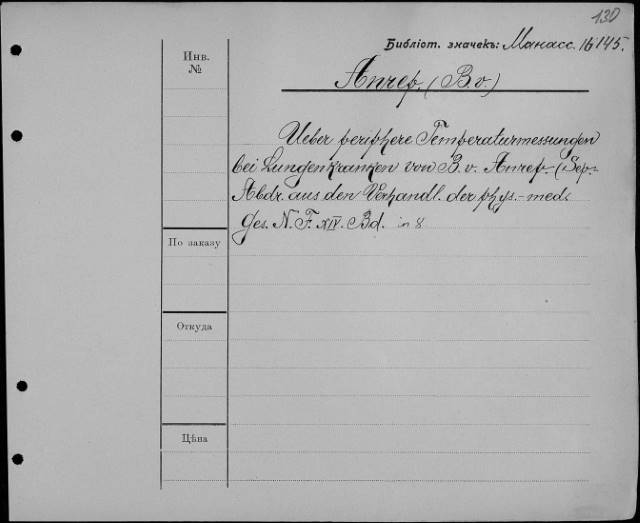 130
Библіот. значекъ: Манасс. 16145.
Инв.
№
Anrep. (B. v.)
Ueber periphere Temperaturmessungen
bei Lungenkranken von B. v. Anrep. (Sep.-
Abdr. aus den Verhandl. der phys.-med.
Ges. N. F. XIV. Bd. in 8
По заказу
Откуда
Цѣна